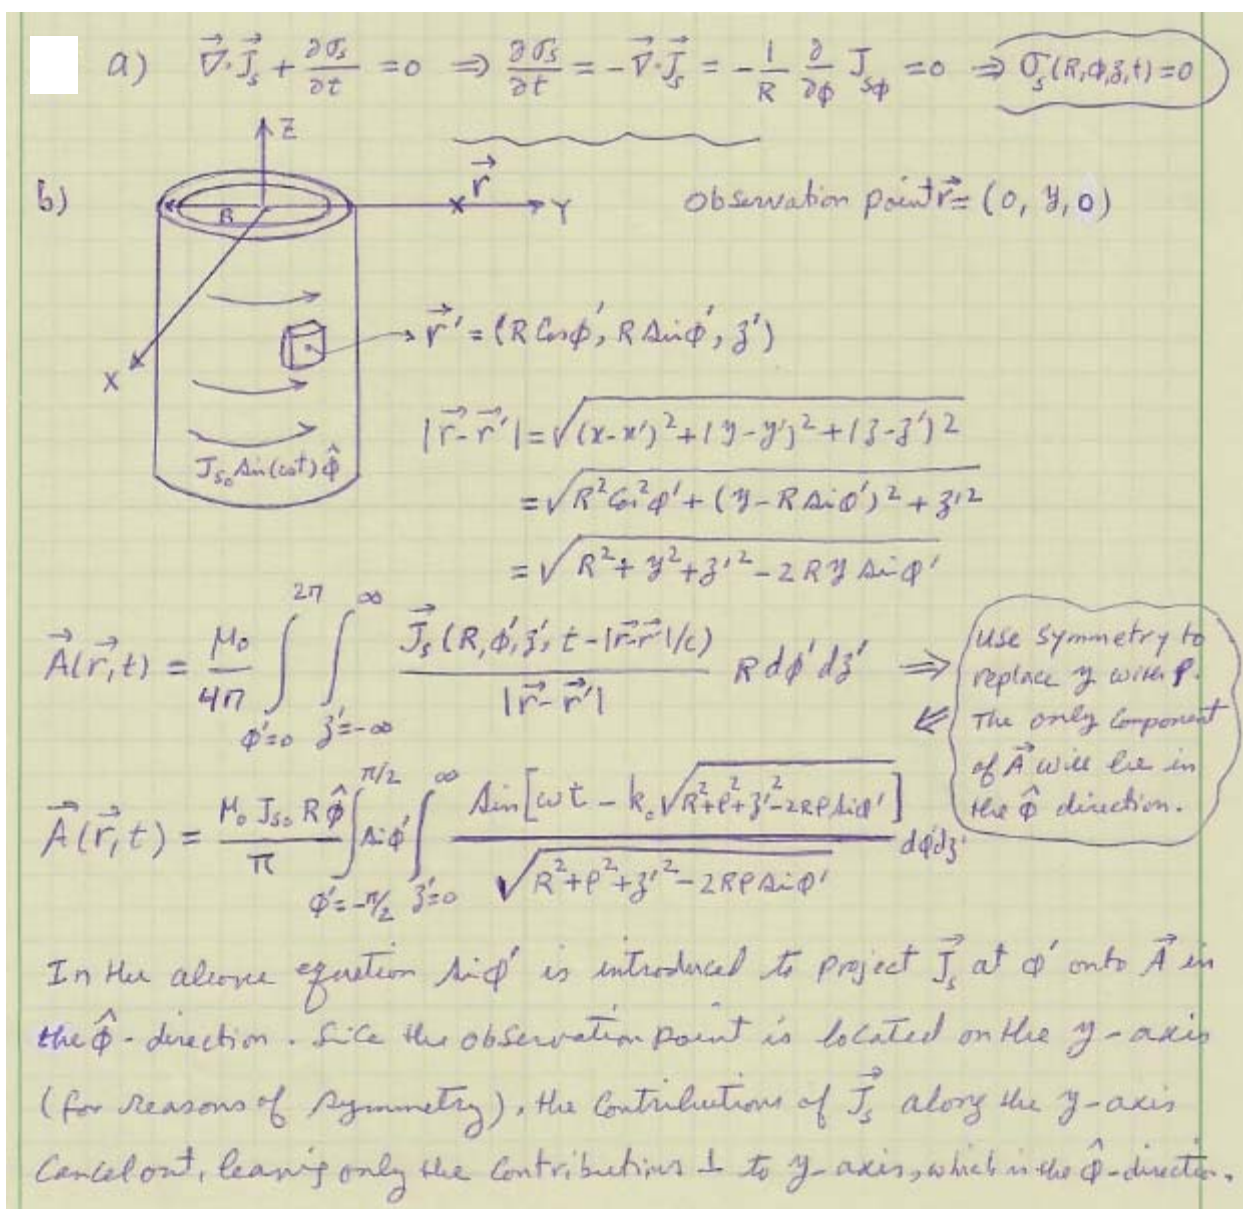 a) ∇⃗·J⃗ₛ + ∂σₛ/∂t = 0 ⇒ ∂σₛ/∂t = -∇⃗·J⃗ₛ = -(1/R) ∂/∂ϕ J_sϕ = 0 ⇒ σₛ(R,ϕ,z,t) = 0
Z
b)
R
r⃗
Y
observation point r⃗ = (0, y, 0)
r⃗′ = (R Cosϕ′, R Sinϕ′, z′)
X
|r⃗-r⃗′| = √((x-x′)² + (y-y′)² + (z-z′)²)
J_s₀ Sin(ωt) ϕ̂
= √(R² Cos²ϕ′ + (y - R Sinϕ′)² + z′²)
= √(R² + y² + z′² - 2Ry Sinϕ′)
A⃗(r⃗,t) = μ₀/4π ∫_{ϕ′=0}^{2π} ∫_{z′=-∞}^{∞} J⃗ₛ(R,ϕ′,z′, t-|r⃗-r⃗′|/c) / |r⃗-r⃗′| R dϕ′dz′ ⇒
Use symmetry to
replace y with ρ.
The only Component
of A⃗ will be in
the ϕ̂ direction.
⇐
A⃗(r⃗,t) = μ₀ J_s₀ R ϕ̂ / π ∫_{ϕ′=-π/2}^{π/2} Sinϕ′ ∫_{z′=0}^{∞} Sin[ωt - k₀√(R²+ρ²+z′²-2Rρ Sinϕ′)] / √(R²+ρ²+z′²-2Rρ Sinϕ′) dϕ′dz′
In the above equation Sinϕ′ is introduced to project J⃗ₛ at ϕ′ onto A⃗ in
the ϕ̂-direction. Sice the observation point is located on the y-axis
(for reasons of symmetry), the Contributions of J⃗ₛ along the y-axis
Cancel out, leavig only the Contributions ⊥ to y-axis, which is the ϕ̂-direction.